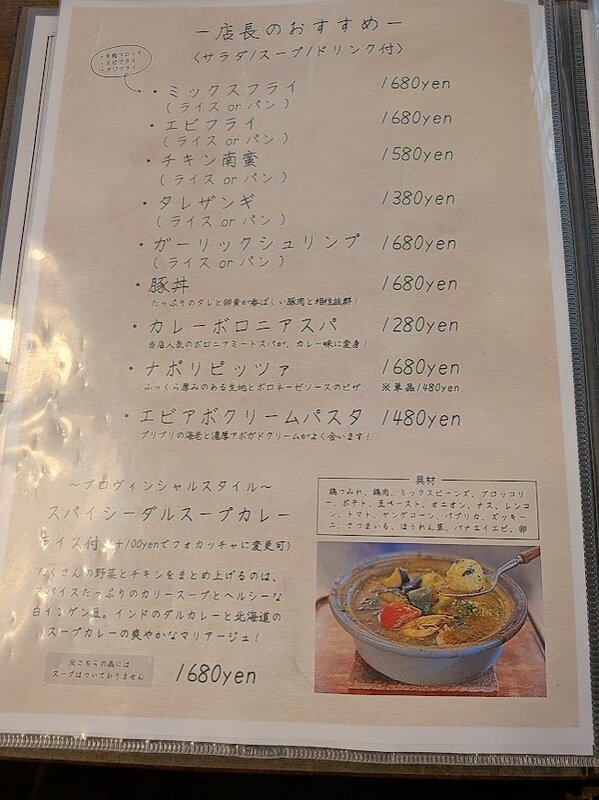 －店長のおすすめ－
〈サラダ/スープ/ドリンク付〉
・牛肉コロッケ
・エビフライ
・アジフライ
・ミックスフライ 1680yen
(ライス or パン)
・エビフライ 1680yen
(ライス or パン)
・チキン南蛮 1580yen
(ライス or パン)
・タレザンギ 1380yen
(ライス or パン)
・ガーリックシュリンプ 1680yen
(ライス or パン)
・豚丼 1680yen
たっぷりのタレと卵黄が香ばしい豚肉と相性抜群！
・カレーボロニアスパ 1280yen
当店人気のボロニアミートスパが、カレー味に変身！
・ナポリピッツァ 1680yen
ふっくら厚みのある生地とボロネーゼソースのピザ ※単品1480yen
・エビアボクリームパスタ 1480yen
プリプリの海老と濃厚アボガドクリームがよく合います！
～プロヴィンシャルスタイル～
スパイシーダルスープカレー
ライス付(+100yenでフォカッチャに変更可)
たくさんの野菜とチキンをまとめ上げるのは、
スパイスたっぷりのカリースープとヘルシーな
白インゲン豆。インドのダルカレーと北海道の
スープカレーの爽やかなマリアージュ！
※こちらの品には
スープはついておりません
1680yen
具材
鶏つみれ、鶏肉、ミックスビーンズ、ブロッコリ
ー、ポテト、豆ペースト、オニオン、ナス、レンコ
ン、トマト、ヤングコーン、パプリカ、ズッキー
ニ、さつまいも、ほうれん草、バナエイエビ、卵